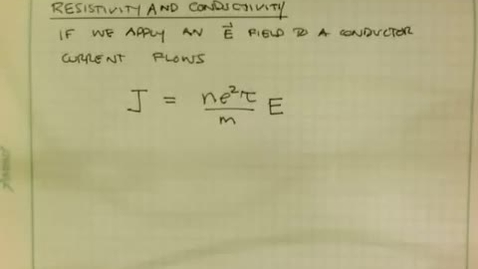 RESISTIVITY AND CONDUCTIVITY
IF WE APPLY AN E⃗ FIELD TO A CONDUCTOR
CURRENT FLOWS
J = ne²τ/m E